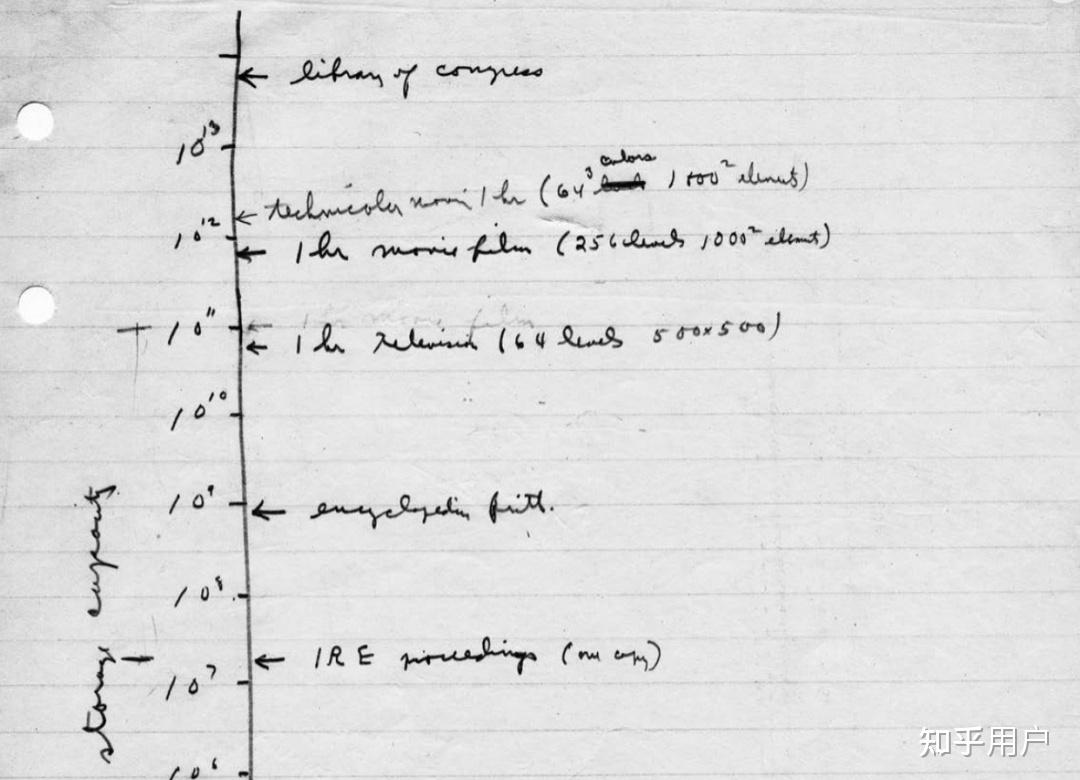 ← library of congress
10^13
← technicolor movie 1 hr (64^3 colors 1000^2 elements)
10^12
← 1 hr movie film (256 levels 1000^2 elements)
10^11
← 1 hr movie film
← 1 hr television (64 levels 500x500)
10^10
10^9
← encyclopedia britt.
10^8
← IRE proceedings (one copy)
10^7
10^6
storage capacity
知乎用户